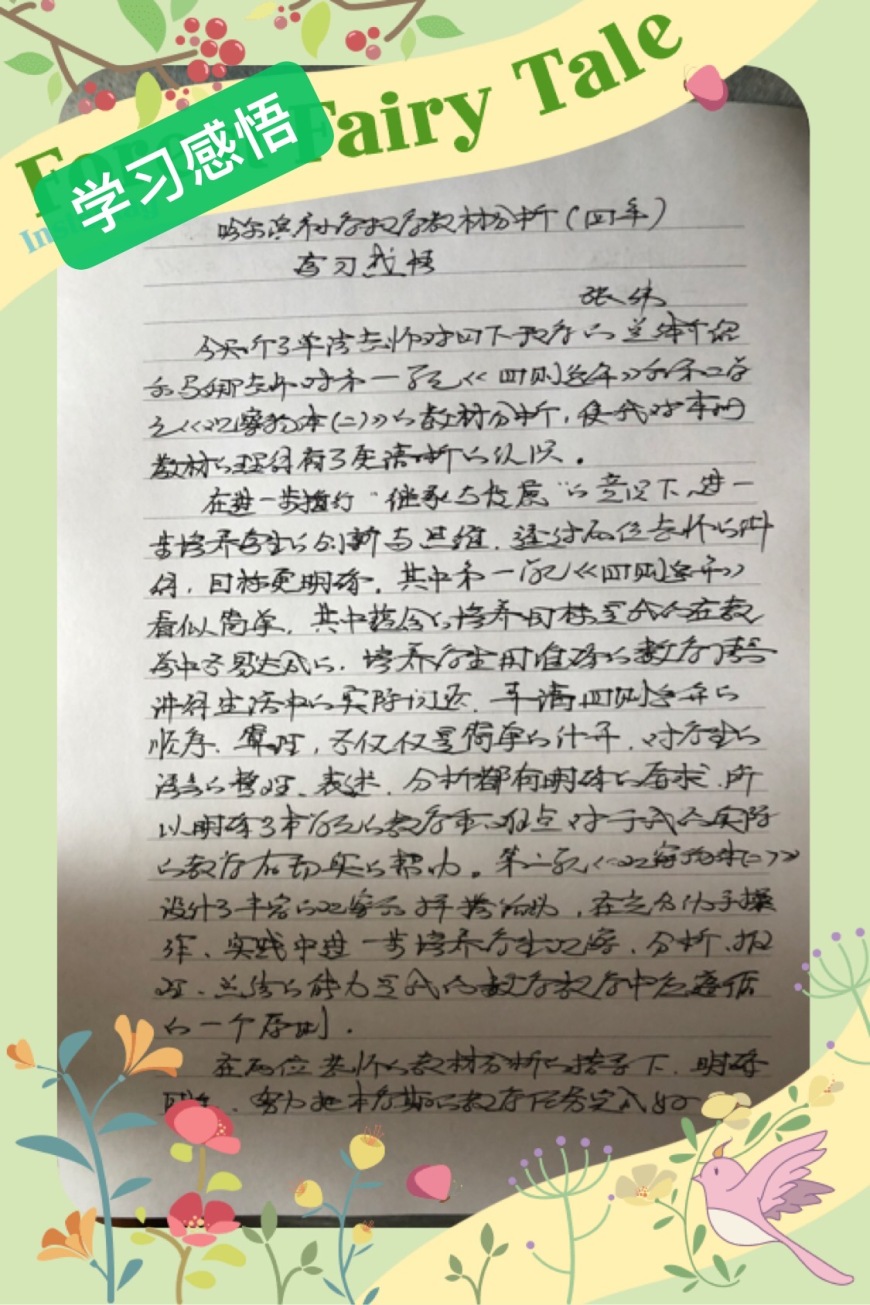 Fore Fairy Tale
学习感悟
Ins
哈尔滨市小学数学教材分析（四年）
学习感悟
张伟
今天听了单洁老师对四下数学的总体介绍
和马娜老师对第一单元《四则运算》和第二单
元《观察物体(二)》的教材分析，使我对本册
教材的理解有了更清晰的认识。
在进一步推行“继承与发展”的意识下，进一
步培养学生的创新与思维，通过两位老师的讲
解，目标更明确。其中第一单元《四则运算》
看似简单，其中蕴含的培养目标是我们在教
学中不易达成的，培养学生用准确的数学语言
讲解生活中的实际问题，弄清四则运算的
顺序、算理，不仅仅是简单的计算，对学生的
语言的整理、表述、分析都有明确的要求，所
以明确了本单元的教学重、难点对于我们实际
的教学有切实的帮助。第二单元《观察物体(二)》
设计了丰富的观察和拼搭活动，在充分的动手操
作、实践中进一步培养学生观察、分析、推
理、总结的能力是我们数学教学中应遵循
的一个原则。
在两位老师的教材分析的指导下，明确
目标，努力把本学期的教学任务完成好